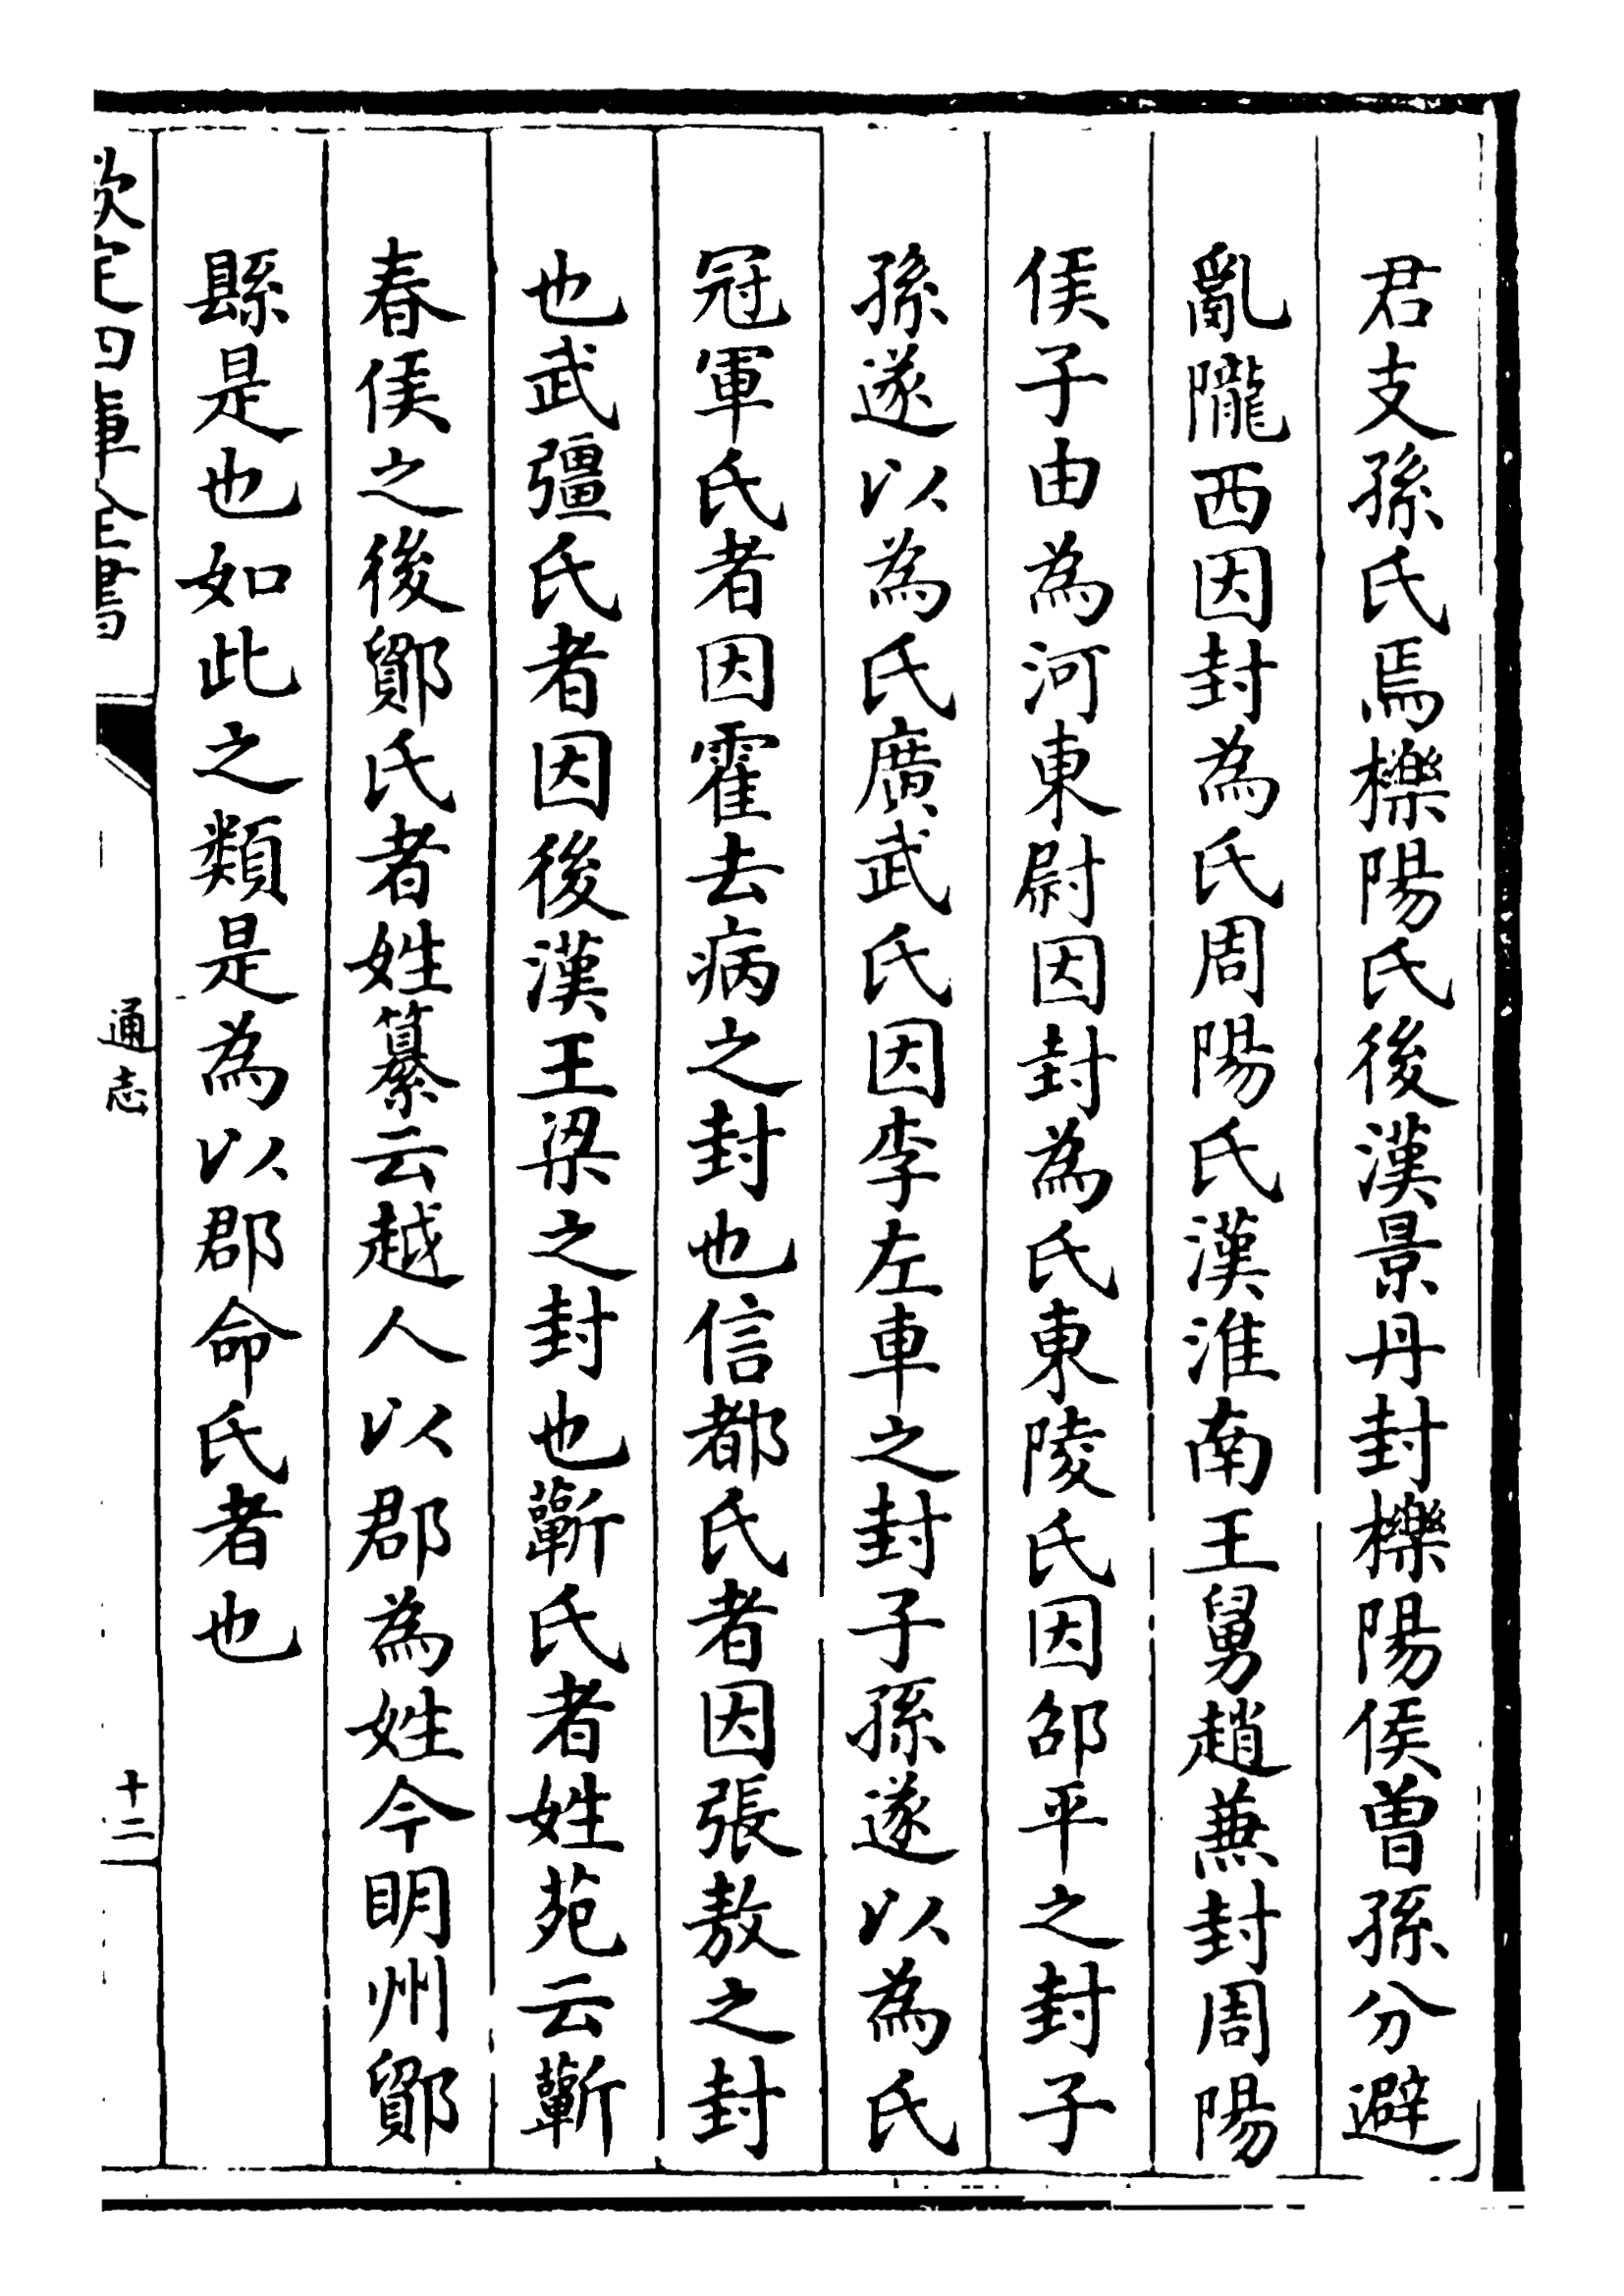 君支孫氏焉櫟陽氏後漢景丹封櫟陽侯曽孫分避
亂隴西因封為氏周陽氏漢淮南王舅趙蒹封周陽
侯子由為河東尉因封為氏東陵氏因邵平之封子
孫遂以為氏廣武氏因李左車之封子孫遂以為氏
冠軍氏者因霍去病之封也信都氏者因張敖之封
也武彊氏者因後漢王梁之封也蘄氏者姓苑云蘄
春侯之後鄮氏者姓纂云越人以郡為姓今明州鄮
縣是也如此之類是為以郡命氏者也
欽定四庫全書
通志
十二